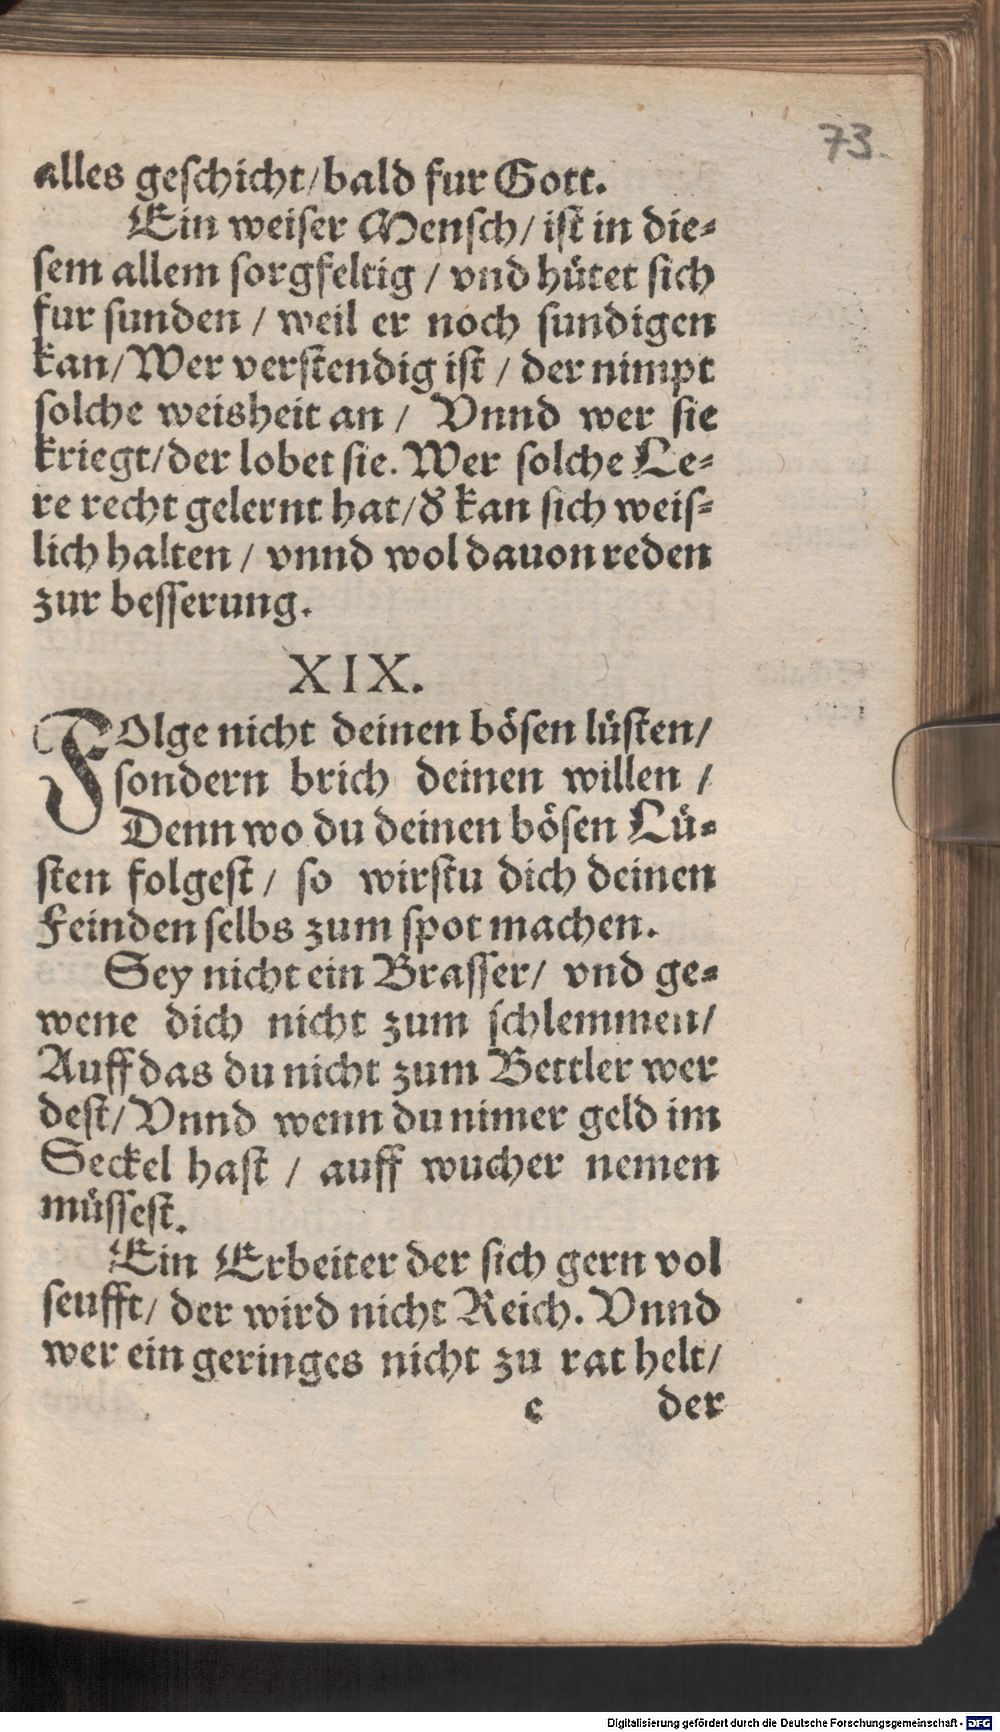 73.
alles geſchicht/bald fur Gott.
Ein weiſer Menſch/ iſt in die⸗
ſem allem ſorgfeltig / vnd huͤtet ſich
fur ſunden / weil er noch ſundigen
kan/Wer verſtendig iſt / der nimpt
ſolche weisheit an / Vnnd wer ſie
kriegt/der lobet ſie. Wer ſolche Le⸗
re recht gelernt hat/d' kan ſich weiſ⸗
lich halten / vnnd wol dauon reden
zur beſſerung.
XIX.
FOlge nicht deinen boͤſen luͤſten/
ſondern brich deinen willen /
Denn wo du deinen boͤſen Luͤ⸗
ſten folgeſt/ ſo wirſtu dich deinen
Feinden ſelbs zum ſpot machen.
Sey nicht ein Braſſer/ vnd ge⸗
wene dich nicht zum ſchlemmen/
Auff das du nicht zum Bettler wer
deſt/Vnnd wenn du nimer geld im
Seckel haſt / auff wucher nemen
muͤſſeſt.
Ein Erbeiter der ſich gern vol
ſeufft/ der wird nicht Reich. Vnnd
wer ein geringes nicht zu rat helt/
c der
Digitalisierung gefördert durch die Deutsche Forschungsgemeinschaft - DFG